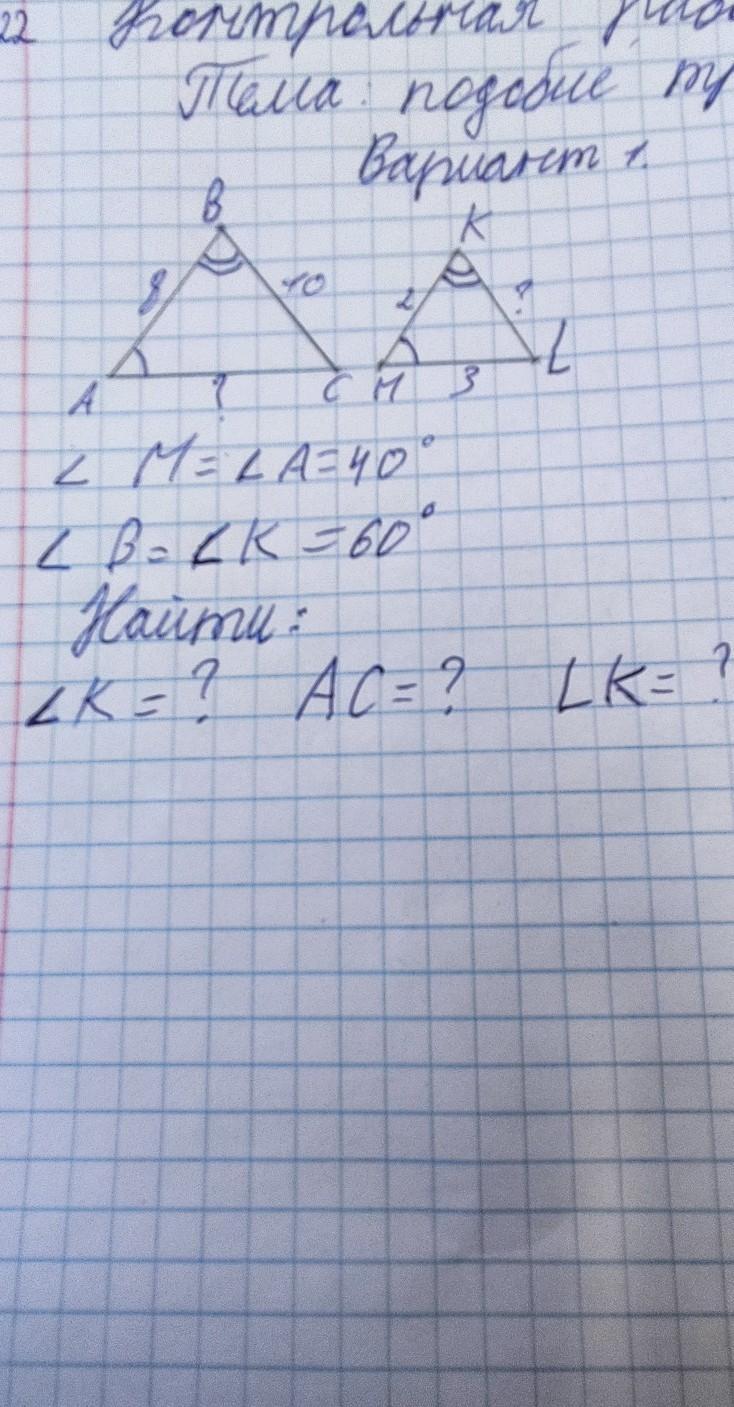 22 Контрольная
Тема: подобие
Вариант 1.
B K
8 10 2 ?
A ? C M 3 L
∠ M = ∠A = 40°
∠ B = ∠K = 60°
Найти:
∠K = ? AC = ? LK = ?